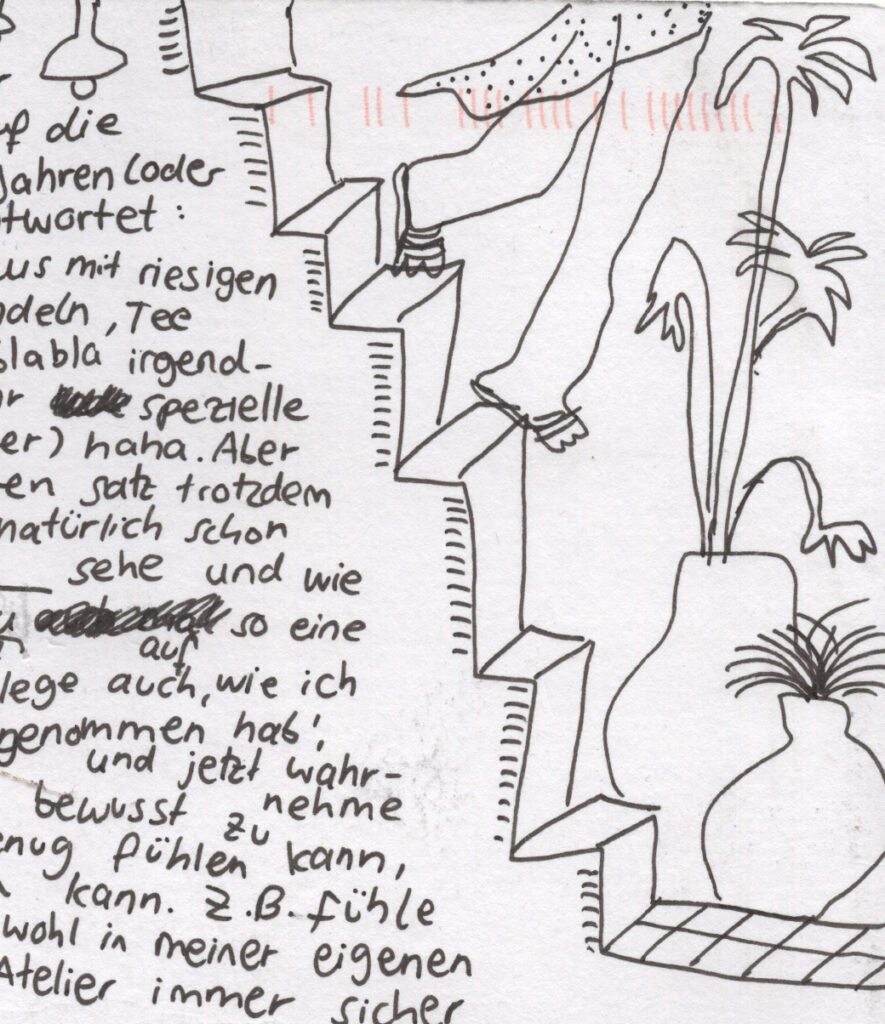 uf die
Jahren (oder
twortet:
us mit riesigen
deln, Tee
blabla irgend-
spezielle
er) haha. Aber
en satz trotzdem
natürlich schon
sehe und wie
so eine
auf
lege auch, wie ich
genommen hab',
und jetzt wahr-
bewusst nehme
zu
enug fühlen kann,
kann. Z.B. fühle
wohl in meiner eigenen
Atelier immer sicher